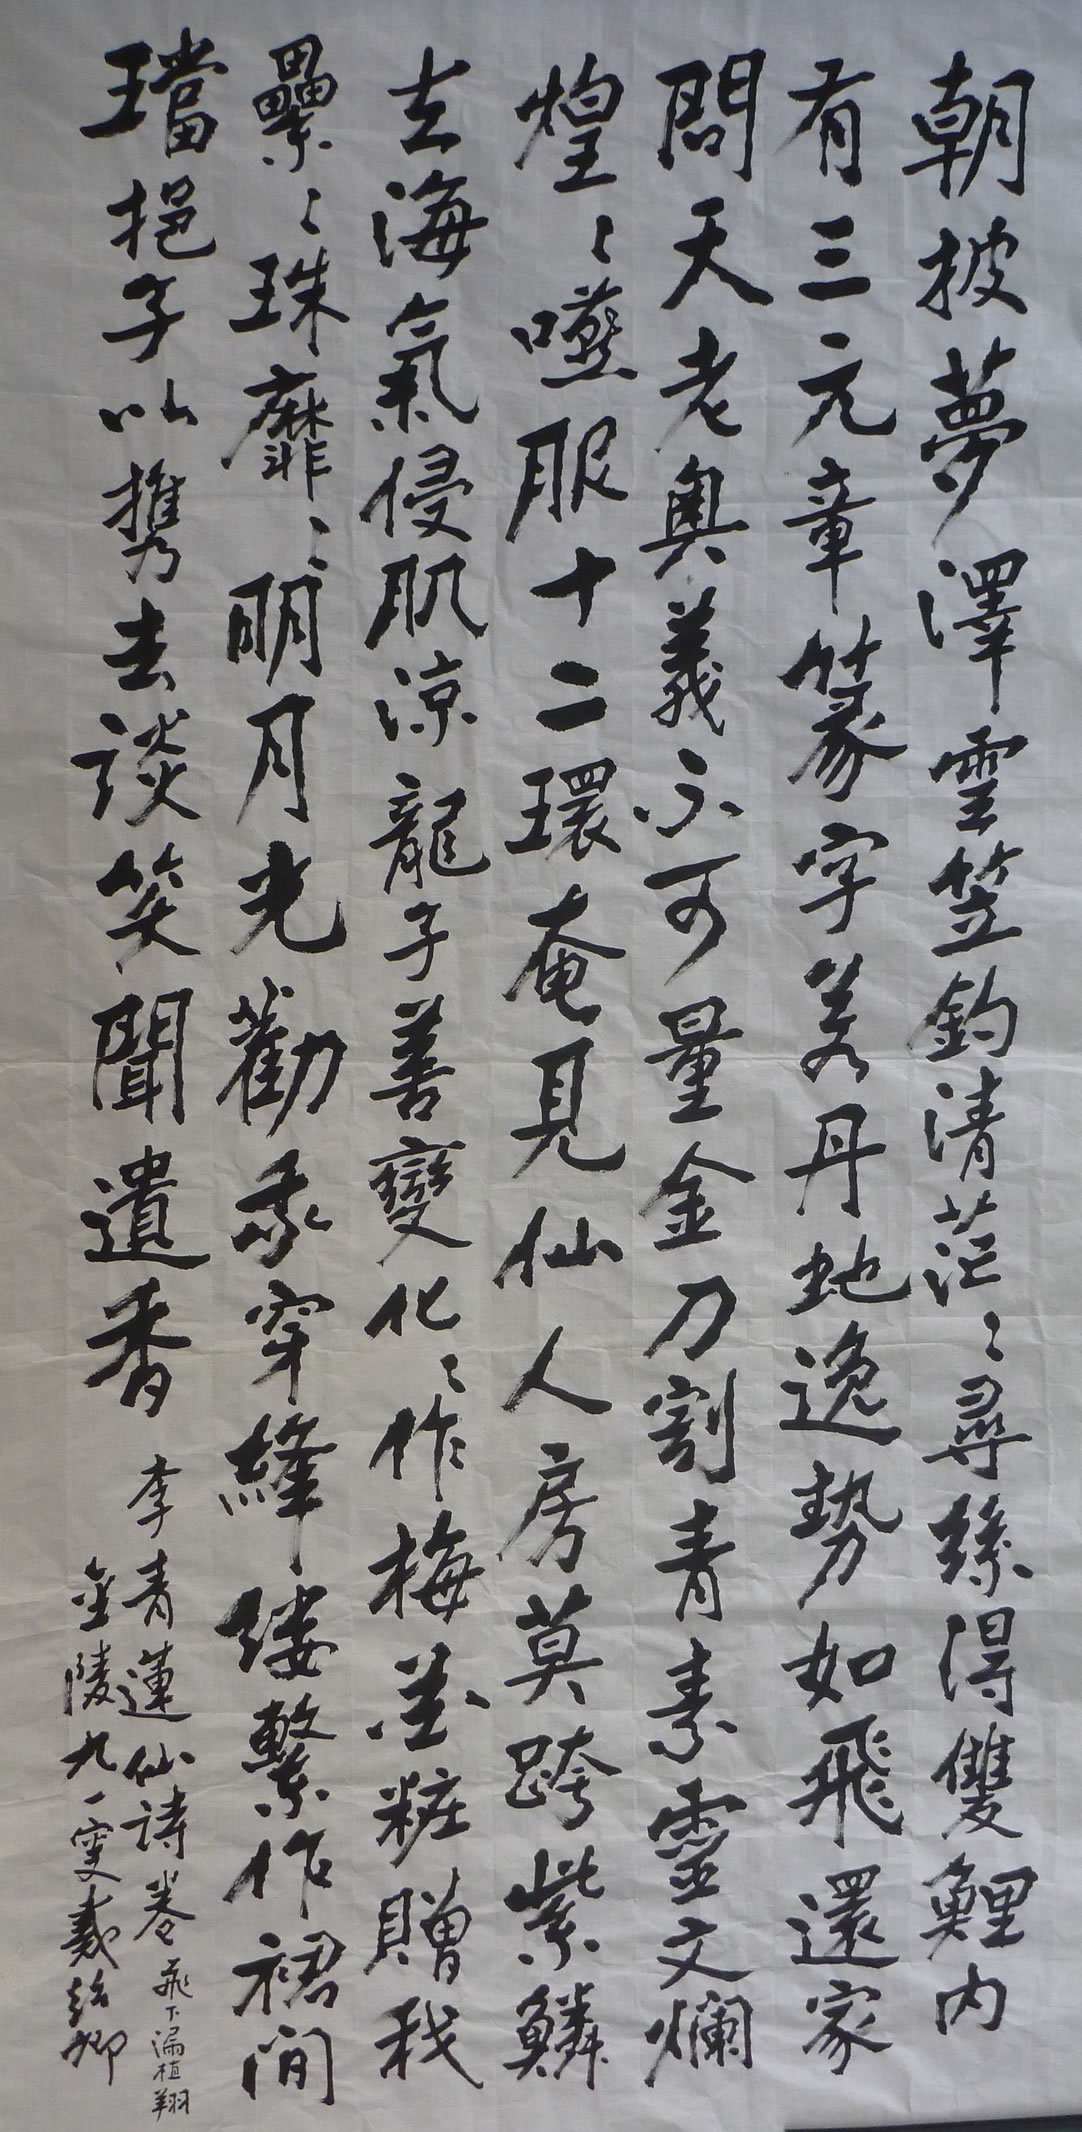 朝披夢澤雲笠釣清茫〻尋絲得雙鯉內
有三元章篆字若丹蛇逸勢如飛還家
問天老奧義不可量金刀割青素靈文爛
煌〻嚥服十二環奄見仙人房莫跨紫鱗
去海氣侵肌涼龍子善變化〻作梅花粧贈我
纍〻珠靡〻明月光勸我穿絳縷繫作裙間
璫挹子以攜去談笑聞遺香
李青蓮仙詩卷飛下漏植翔
金陵九一叟戴